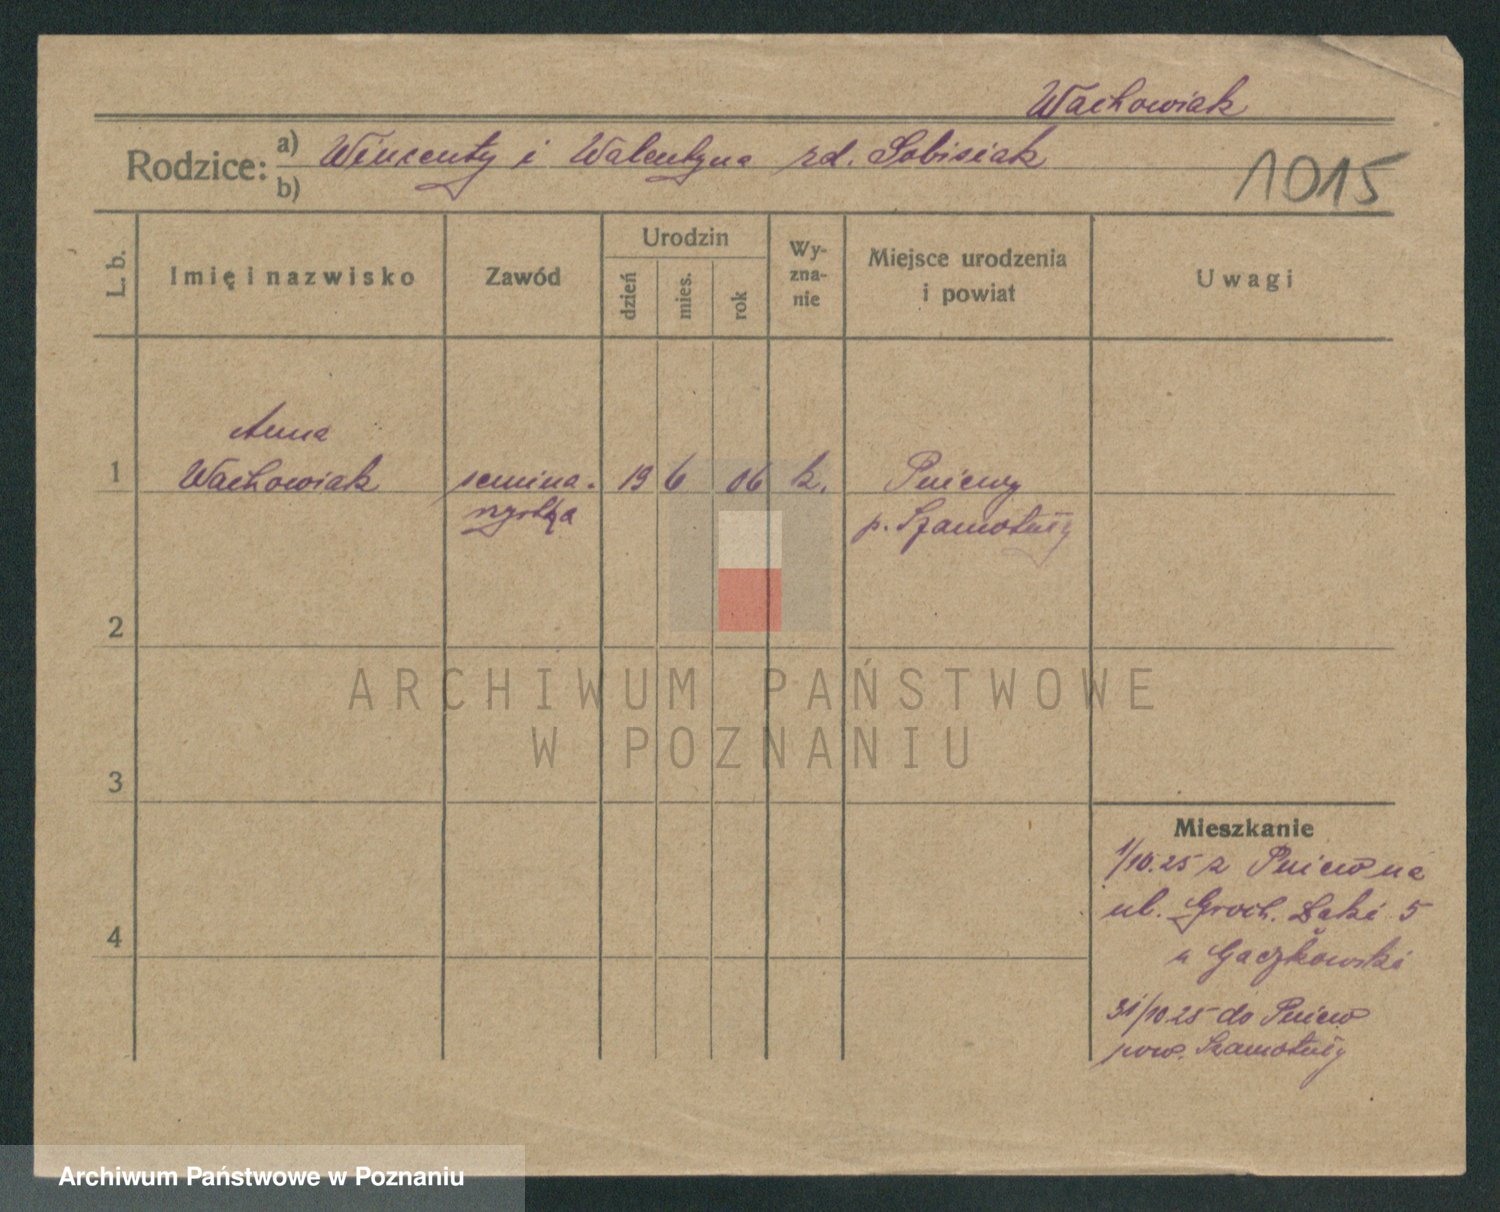 Wachowiak
Rodzice: a) Wincenty i Walentyna zd. Sobisiak
b)
1015
L. b.
Imię i nazwisko
Zawód
Urodzin
dzień
mies.
rok
Wy-
zna-
nie
Miejsce urodzenia
i powiat
Uwagi
Anna
1 Wachowiak semina- 19 6 06 k. Pniewy
rystka p. Szamotuły
2
ARCHIWUM PAŃSTWOWE
W POZNANIU
3
Mieszkanie
1/10.25 z Pniew na
ul. Groch. Łąki 5
4
u Gaczkowski
31/10 25 do Pniew
pow. Szamotuły
Archiwum Państwowe w Poznaniu